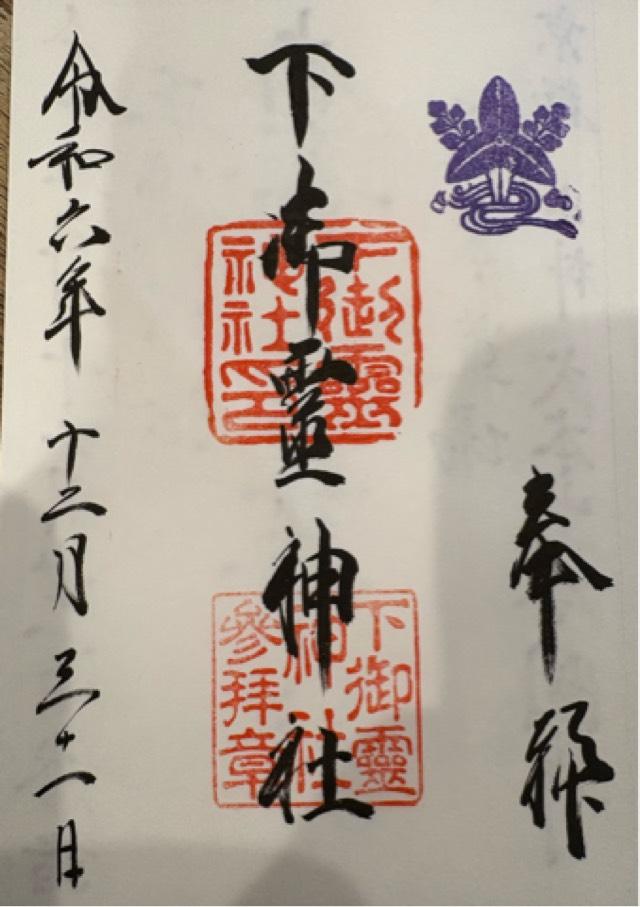 奉拝
下御靈神社
下御靈神社印
下御靈神社參拜章
令和六年 十二月 三十一日